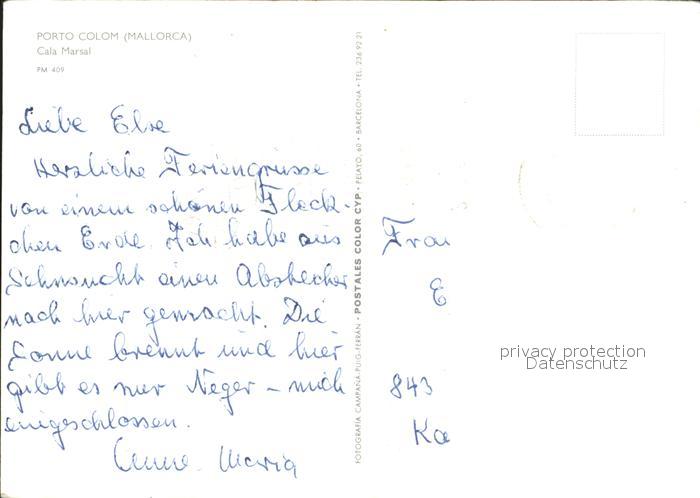 PORTO COLOM (MALLORCA)
Cala Marsal
PM 409
Liebe Else
Herzliche Feriengrüsse
von einem schönen Fleck-
chen Erde. Ich habe aus
Sehnsucht einen Abstecher
nach hier gemacht. Die
Sonne brennt und hier
gibt es nur Neger - mich
eingeschlossen.
Anne-Maria
FOTOGRAFÍA CAMPAÑÁ-PUIG-FERRÁN - POSTALES COLOR CYP • PELAYO, 60 • BARCELONA • TEL. 236 92 21
Frau
E
843
Ka
privacy protection
Datenschutz